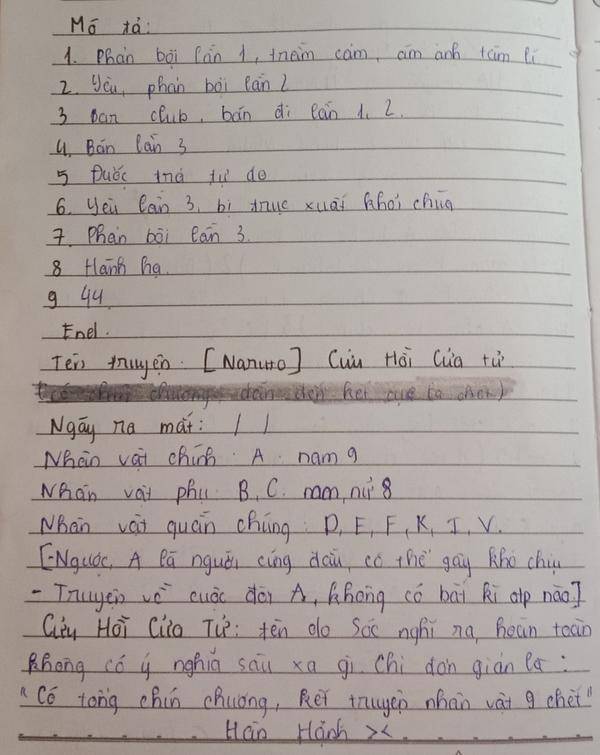 Mô tả:
1. Phản bội lần 1, trầm cảm, ám ảnh tâm lí
2. Yêu, phản bội lần 2
3 Bar club, bán đi lần 1, 2.
4. Bán lần 3
5 Được trả tự do
6. Yêu lần 3, bị trục xuất khỏi chùa
7. Phản bội lần 3.
8 Hành hạ.
9 44.
End.
Tên truyện: [Naruto] Cửu Hồi Cửa tử
chương, dẫn đến kết cục là chết)
Ngày ra mắt: / /
Nhân vật chính: A. nam 9
Nhân vật phụ: B, C. nam, nữ 8
Nhân vật quần chúng: D, E, F, K, I, V.
[-Ngược, A là người cứng đầu, có thể gây khó chịu
- Truyện về cuộc đời A, không có bất kì otp nào]
Cửu Hồi Cửa Tử: tên do Sóc nghĩ ra, hoàn toàn
không có ý nghĩa sâu xa gì. Chỉ đơn giản là:
"Có tổng chín chương, kết truyện nhân vật 9 chết"
Hân Hạnh ><